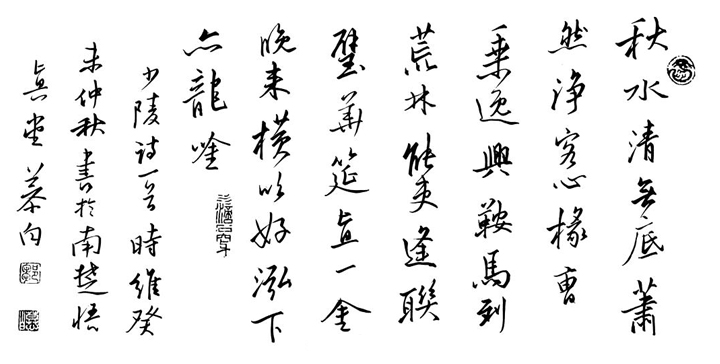 秋水清無底蕭
然淨客心掾曹
乘逸興鞍馬到
荒林能吏逢聯
璧華筵直一金
晚來橫吹好泓下
亦龍唫
少陵詩一首時維癸
未仲秋書於南楚悟
真堂慕向